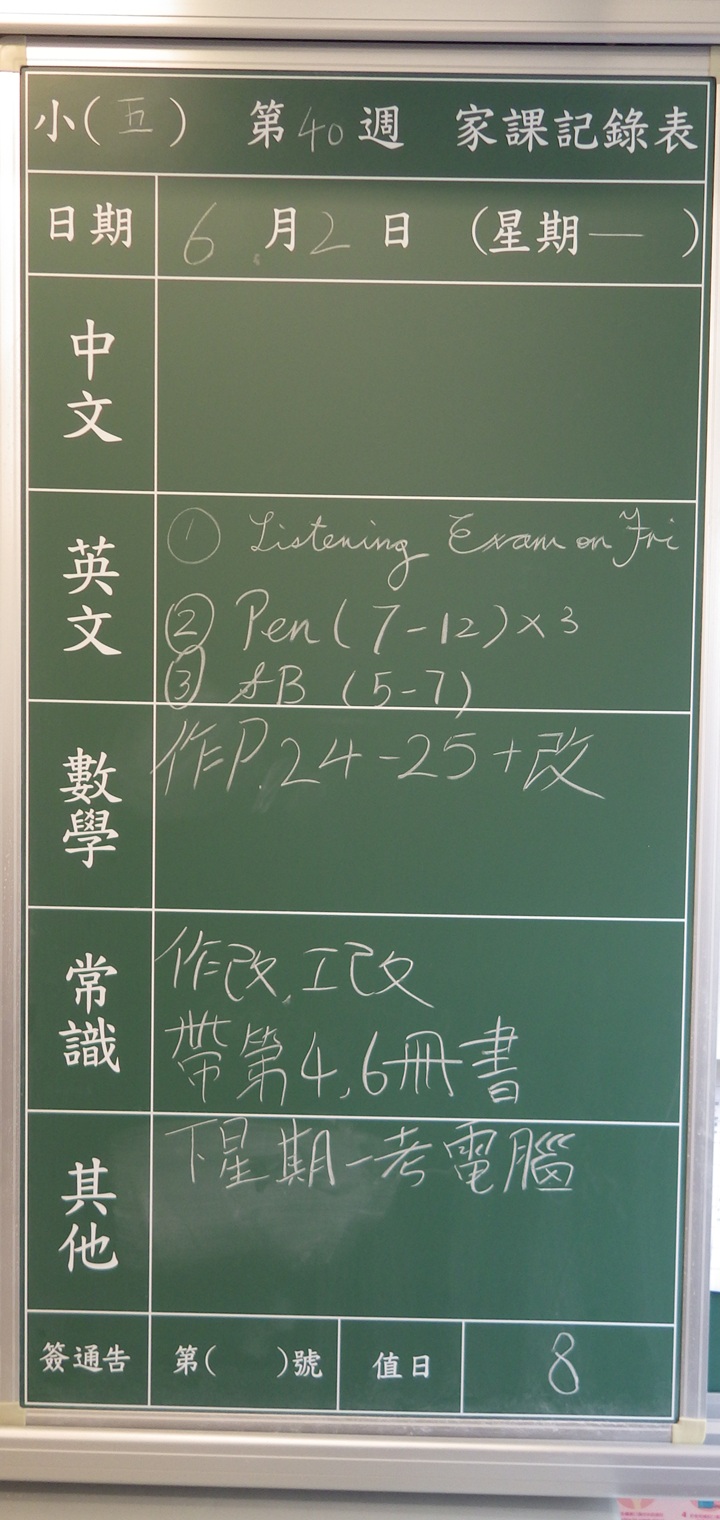 小(五) 第40週 家課記錄表
日期 6月2日 (星期一)
中文
英文
① Listening Exam on Fri
② Pen (7-12)×3
③ AB (5-7)
數學
作P.24-25+改
常識
作改.工改
帶第4,6冊書
其他
下星期一考電腦
簽通告 第( )號 值日 8